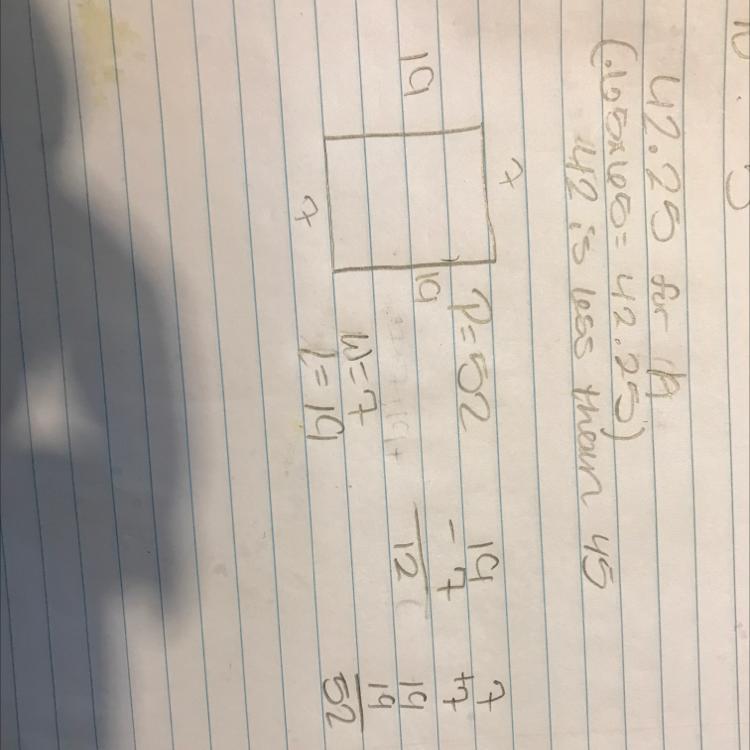 42.25 for it
(.65x65=42.25)
42 is less than 45
7
19
19
7
P=52
W=7
L=19
19
-7
12
7
+7
19
19
52